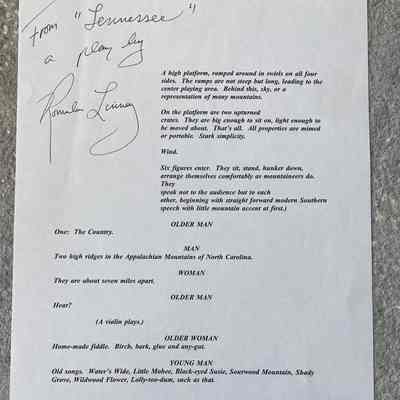 From "Tennessee"
a play by
Romulus Linney
A high platform, ramped around in swirls on all four
sides. The ramps are not steep but long, leading to the
center playing area. Behind this, sky, or a
representation of many mountains.
On the platform are two upturned
crates. They are big enough to sit on, light enough to
be moved about. That's all. All properties are mimed
or portable. Stark simplicity.
Wind.
Six figures enter. They sit, stand, hunker down,
arrange themselves comfortably as mountaineers do.
They
speak not to the audience but to each
other, beginning with straight forward modern Southern
speech with little mountain accent at first.)
OLDER MAN
One: The Country.
MAN
Two high ridges in the Appalachian Mountains of North Carolina.
WOMAN
They are about seven miles apart.
OLDER MAN
Hear?
(A violin plays.)
OLDER WOMAN
Home-made fiddle. Birch, bark, glue and any-gut.
YOUNG MAN
Old songs. Water's Wide, Little Mohee, Black-eyed Susie, Sourwood Mountain, Shady
Grove, Wildwood Flower, Lolly-too-dum, such as that.